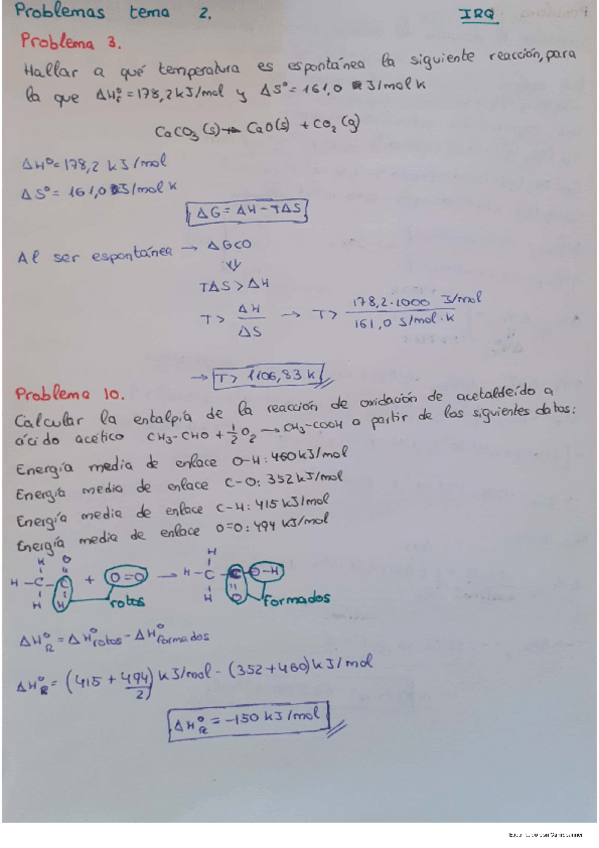 Problemas tema 2. IRQ
Problema 3.
Hallar a qué temperatura es espontánea la siguiente reacción, para
la que ΔHr° = 178,2 kJ/mol y ΔS° = 161,0 J/mol K
CaCO₃(s) → CaO(s) + CO₂(g)
ΔH° = 178,2 kJ/mol
ΔS° = 161,0 J/mol K
ΔG = ΔH - TΔS
Al ser espontánea → ΔG<0
⇓
TΔS > ΔH
T > ΔH/ΔS → T > 178,2·1000 J/mol / 161,0 J/mol·K
→ T > 1106,83 K
Problema 10.
Calcular la entalpía de la reacción de oxidación de acetaldeído a
ácido acético CH₃-CHO + 1/2 O₂ → CH₃-COOH a partir de los siguientes datos:
Energía media de enlace O-H: 460 kJ/mol
Energía media de enlace C-O: 352 kJ/mol
Energía media de enlace C-H: 415 kJ/mol
Energía media de enlace O=O: 494 kJ/mol
H O H
H - C - C + O=O → H - C - C O-H
H H rotos H O formados
ΔH°R = ΔH°rotos - ΔH°formados
ΔH°R = (415 + 494/2) kJ/mol - (352 + 460) kJ/mol
ΔH°R = -150 kJ/mol